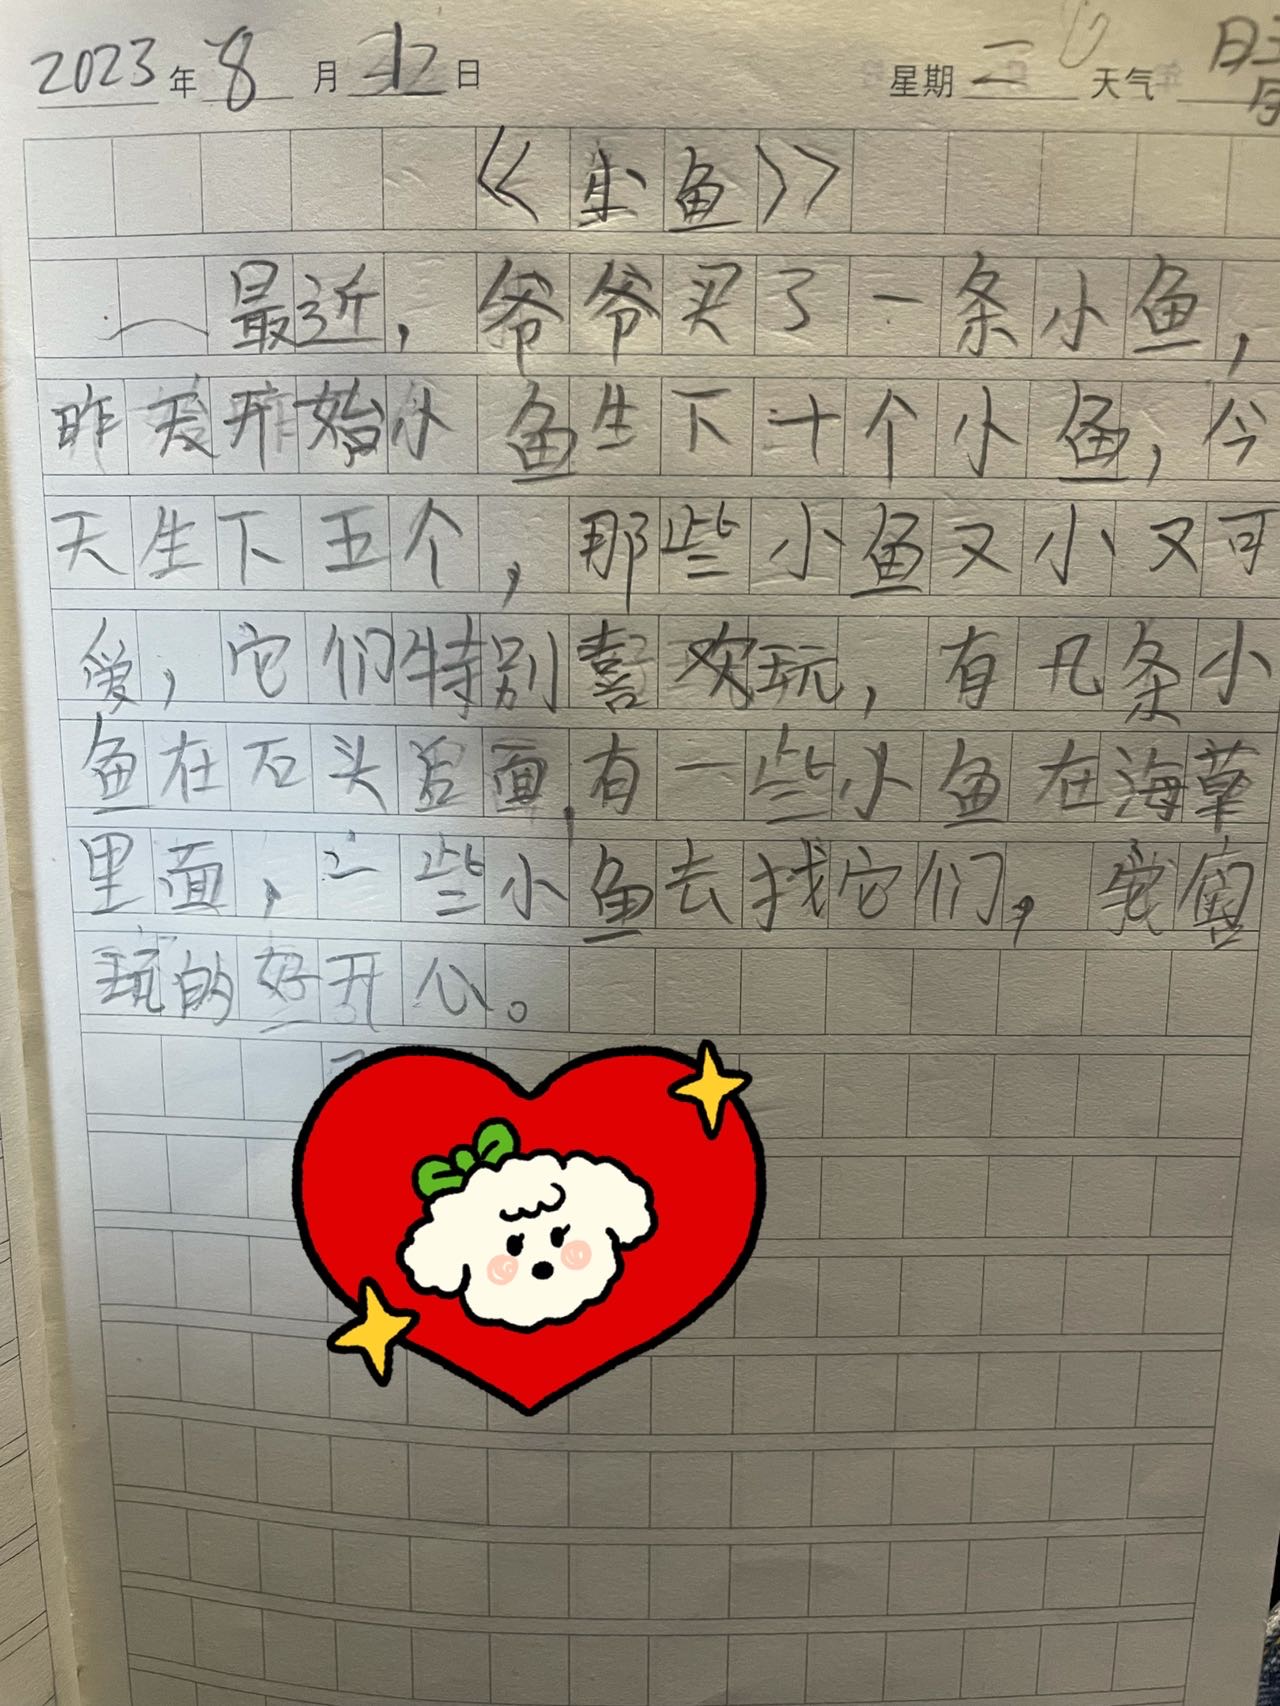 2023年8月12日 星期二 天气 晴
《小鱼》
最近，爷爷买了一条小鱼，
昨天开始小鱼生下十个小鱼，今
天生下五个，那些小鱼又小又可
爱，它们特别喜欢玩，有几条小
鱼在石头后面，有一些小鱼在海草
里面，这些小鱼去找它们，
玩的好开心。